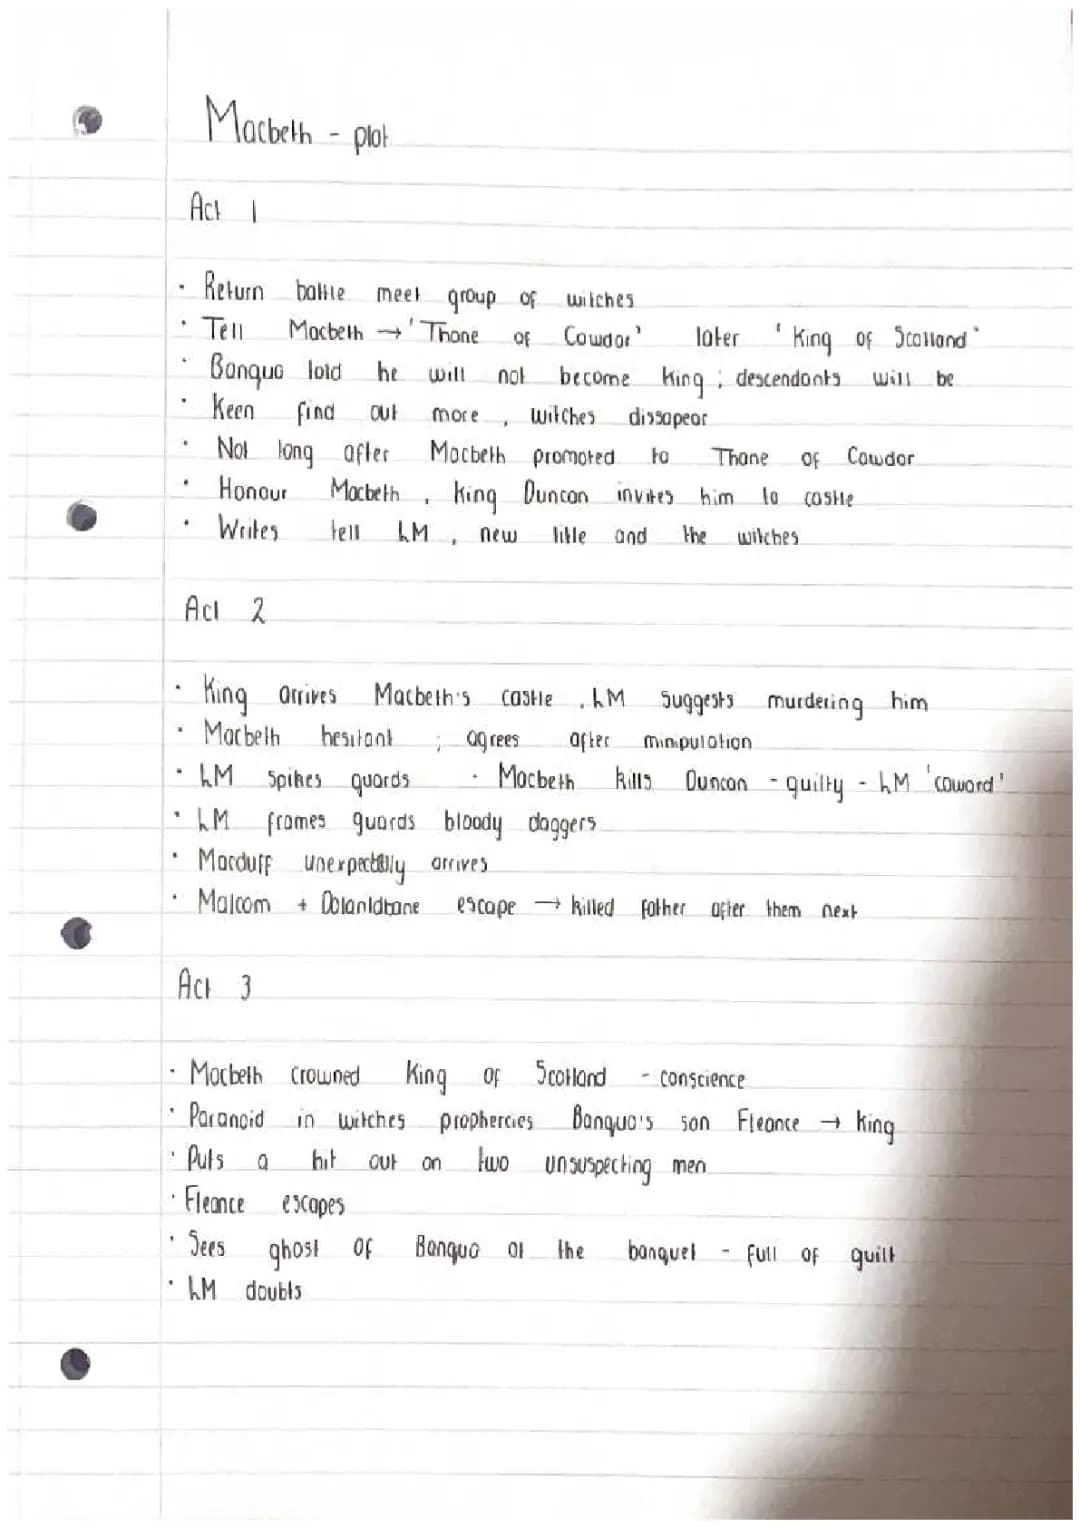 Macbeth - plot
Act 1
• Return battle meet group of witches
• Tell Macbeth → 'Thane of Cawdor' later 'King of Scotland'
• Banquo told he will not become King ; descendants will be
• Keen find out more , witches dissapear
• Not long after Macbeth promoted to Thane of Cawdor
• Honour Macbeth , King Duncan invites him to castle
• Writes tell LM , new title and the witches
Act 2
• King arrives Macbeth's castle . LM suggests murdering him
• Macbeth hesitant ; agrees after minipulation
• LM spikes guards • Macbeth kills Duncan - guilty - LM 'coward'
• LM frames guards bloody daggers
• Macduff unexpectedly arrives
• Malcom + Dolanldbane escape → killed father after them next
Act 3
• Macbeth crowned King of Scotland - conscience
• Paranoid in witches prophercies Banquo's son Fleance → King
• Puts a hit out on two unsuspecting men
• Fleance escapes
• Sees ghost of Banquo at the banquet - full of guilt
• LM doubts